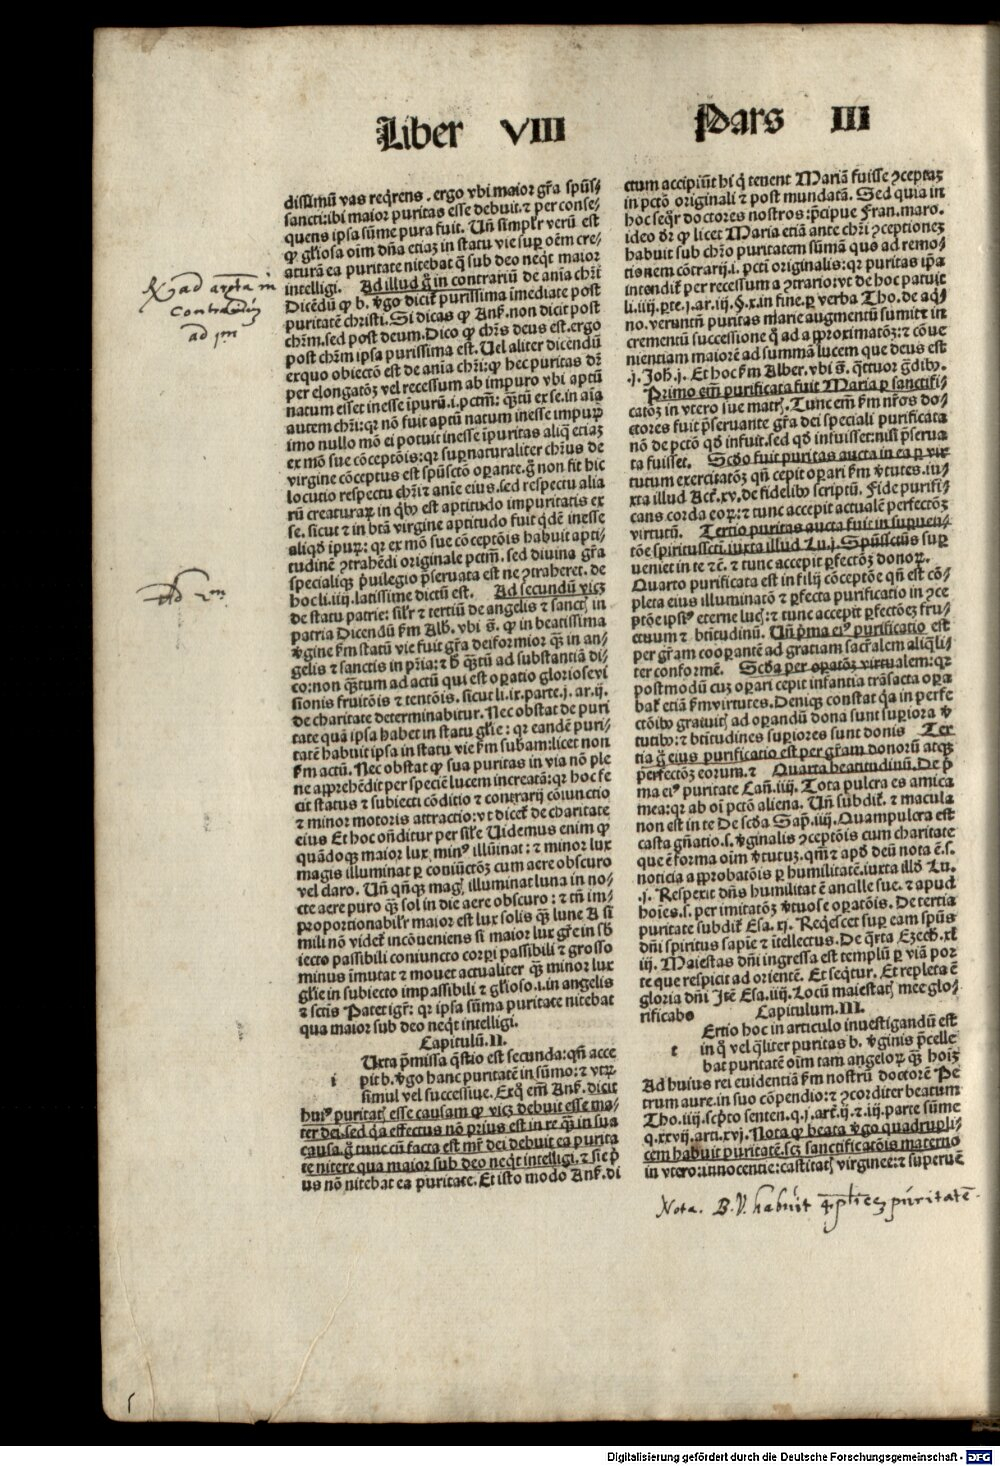 Liber VIII Pars III
dissimū vas reqͥrens. ergo vbi maior gr̄a spūs⸗
sancti:ibi maior puritas esse debuit.⁊ per conse⸗
quens ipsa sūme pura fuit. Uñ simplr̄ verū est
ꝙ gl̄iosa oīm dn̄a etiaꝫ in statu vie suꝑ oēm cre⸗
aturā ea puritate nitebat ꝙ̄ sub deo neqͥt maior
intelligi. Ad illud g̊ in contrariū de anīa chr̄i
Dicēdū ꝙ b. v̓go dicit᷑ purissima īmediate post
puritatē christi. Si dicas ꝙ Anẜ. non dicit post
chr̄m.sed post deum. Dico ꝙ chr̄s deus est.ergo
post chr̄m ipsa purissima est. Uel aliter dicendū
exquo obiectō est de anīa chr̄i:ꝙ hec puritas dr̄
per elongatōꝫ vel recessum ab impuro vbi aptū
natum esset inesse īpurū.i.pctm̄: qꝫtū ex se.in aīa
autem chr̄i:qr nō fuit aptū natum inesse impuꝝ
imo nullo mō ei potuit inesse īpuritas aliqͣ etiaꝫ
ex mō sue cōceptōis:qr suꝑnaturaliter chr̄us de
virgine cōceptus est spūsctō oꝑante.g̊ non fit hic
locutio respectu chr̄i ⁊ anīe eius.sed respectu alia
rū creaturaꝝ in qͥbꝫ est aptitudo impuritatis ex
se. sicut ⁊ in btā virgine aptitudo fuit qͥdē inesse
aliqd̓ ipuꝝ: qr ex mō sue cōceptōis habuit apti⸗
tudinē ꝯtrahēdi originale pctm̄. sed diuina gr̄a
specialiqꝫ p̓uilegio p̄seruata est ne ꝯtraheret. de
hoc li.iiij.latissime dictū est. Ad secundū vicꝫ
de statu patrie: silr̄ ⁊ tertiū de angelis ⁊ sanctꝭ in
patria Dicendū ẜm Alb̓. vbi s̄. ꝙ in beatissima
v̓gine ẜm statū vie fuit gr̄a deiformior qꝫ in an⸗
gelis ⁊ sanctis in pr̄ia: ⁊ B qꝫtū ad substantiā di⸗
co:non qꝫtum ad actū qui est oꝑatio gloriose vi
sionis fruitōis ⁊ tentōis. sicut li.ix.parte.j. ar.ij.
de charitate determinabitur. Nec obstat de puri
tate quā ipsa habet in statu gl̄ie: qr eandē puri⸗
tatē habuit ipsa in statu vie ẜm subam:licet non
ẜm actū. Nec obstat ꝙ sua puritas in via nō ple
ne apprehēdit per speciē lucem increatā:qr hoc fe
cit status ⁊ subiecti cōditio ⁊ contrarij cōiunctio
⁊ minor motoris attractio:vt dicet᷑ de charitate
eius Et hoc on̄ditur per sil̄e Uidemus enim ꝙ
quādoqꝫ maior lux minꝰ illūinat: ⁊ minor lux
magis illuminat ꝑ coniūctōꝫ cum aere obscuro
vel claro. Uñ qn̄qꝫ magꝭ illuminat luna in no⸗
cte aere puro qꝫ sol in die aere obscuro: ⁊ tn̄ im⸗
proportionabilr̄ maior est lux solis qꝫ lune A si
mili nō videt᷑ incōueniens si maior lux gr̄e in sb̓
iecto passibili coniuncto corꝑi passibili ⁊ grosso
minus īmutat ⁊ mouet actualiter qꝫ minor lux
gl̄ie in subiecto impassibili ⁊ gl̄ioso.i.in angelis
⁊ sctīs Patet igr̄: qr ipsa sūma puritate nitebat
qua maior sub deo neqͥt intelligi.
Capitulū.II.
Uxta p̄missa qͣstio est secunda:qn̄ acce
i pit b.v̓go hanc puritatē in sūmo:⁊ vtꝝ
simul vel successiue. Exqͦ em̄ Anẜ.dicit
huiꝰ puritatꝭ esse causam ꝙ vicꝫ debuit esse ma⸗
ter dei.sed qͥa effectus nō prius est in re qꝫ in sua
causa.g̊ tunc cū facta est mr̄ dei debuit ea purita
te nitere qua maior sub deo neqͥt intelligi.⁊ sic p̓
us nō nitebat ea puritate. Et isto modo Anẜ.di
ctum accipiūt hi qͥ tenent Mariā fuisse ꝯceptaꝫ
in pctō originali ⁊ post mundatā. Sed quia in
hoc seqͥr doctores nostros:p̓cipue Fran.maro.
ideo dr̄ ꝙ licet Maria etiā ante chr̄i ꝯceptioneꝫ
habuit sub chr̄o puritatem sūmā quo ad remo⸗
tionem cōtrarij.i.pctī originalis:qr puritas ip̄a
intendit᷑ per recessum a ꝯtrario:vt de hoc patuit
li.iiij.ꝑte.j.ar.iij.§.x.in fine.ꝑ verba Tho.de aqͥ⸗
no. veruntn̄ puritas marie augmentū sumit in
crementū successione qͣ ad approximatōꝫ:⁊ cōue
nientiam maiorē ad summā lucem que deus est
.j. Joh̓.j. Et hoc ẜm Alber. vbi s̄. qͣttuor g̓dibꝫ.
Primo em̄ purificata fuit Maria ꝑ sanctifi⸗
catōꝫ in vtero sue matrꝭ. Tunc em̄ ẜm nr̄os do⸗
ctores fuit p̄seruante gr̄a dei speciali purificata
nō de pctō qd̓ infuit.sed qd̓ infuisset:nisi p̄serua
ta fuisset. Scd̓o fuit puritas aucta in ea ꝑ vir
tutum exercitatōꝫ qn̄ cepit oꝑari ẜm v̓tutes.iu⸗
xta illud Act.xv.de fidelibꝫ scriptū. Fide purifi⸗
cans corda eoꝝ:⁊ tunc accepit actualē perfectōꝫ
virtutū. Tertio puritas aucta fuit in suꝑuen⸗
tōe spiritussctī.iuxta illud Lu.j. Spūssctūs suꝑ
ueniet in te ⁊c̄. ⁊ tunc accepit ꝑfectōꝫ donoꝝ.
Quarto purificata est in filij cōceptōe qn̄ est cō⸗
pleta eius illuminatō ⁊ ꝑfecta purificatio in ꝯce
ptōe ipsiꝰ eterne lucꝭ:⁊ tunc accepit ꝑfectōeꝫ fru⸗
ctuum ⁊ btitudinū. Uñ p̄ma eiꝰ purificatio est
per gr̄am cooꝑantē ad gratiam sacr̄alem aliqͣli⸗
ter conformē. Scd̓a per oꝑatōꝫ virtualem:qr
postmodū cuꝫ oꝑari cepit infantia trāsacta oꝑa
bat᷑ etiā ẜm virtutes. Deniqꝫ constat qͥa in perfe
ctōibꝫ gratuitꝭ ad oꝑandū dona sunt suꝑiora v̓
tutibꝫ:⁊ btitudines suꝑiores sunt donis Ter
tia g̊ eius purificatio est per gr̄am donorū atqꝫ
perfectōꝫ eorum.⁊ Quarta beatitudinū. De p̓
ma eiꝰ puritate Can̄.iiij. Tota pulcra es amica
mea:qr ab oī pctō aliena. Uñ subdit᷑. ⁊ macula
non est in te De scd̓a Sap̄.iiij. Quampulcra est
casta gn̄atio.s.v̓ginalis ꝯceptōis cum charitate
que ē forma oīm v̓tutuꝫ.qm̄ ⁊ apd̓ deū nota ē.s.
noticia approbatōis ꝑ humilitatē.iuxta illd̓ Lu.
.j. Respexit dn̄s humilitatē ancille sue.⁊ apud
hoīes.s. per imitatōꝫ v̓tuose oꝑatōis. De tertia
puritate subdit᷑ Esa.xj. Reqͥescet suꝑ eam spūs
dn̄i spiritus sapīe ⁊ ītellectus. De qͣrta Ezech̓.xl
iij. Maiestas dn̄i ingressa est templū ꝑ viā por
te que respicit ad orientē. Et seqͥtur. Et repleta ē
gloria dn̄i Itē Esa.iiij. Locū maiestatꝭ mee glo⸗
rificabo Capitulum.III.
Ertio hoc in articulo inuestigandū est
t in qͦ vel qͣliter puritas b. v̓ginis p̄celle
bat puritatē oīm tam angeloꝝ qꝫ hoīꝫ
Ad huius rei euidentiā ẜm nostrū doctorē Pe
trum aure.in suo cōpendio:⁊ ꝯcorditer beatum
Tho.iiij.scp̄to senten.q.j.art.ij.⁊.iij.parte sūme
q.xxvij.arti.xvj. Nota ꝙ beata v̓go quadrupli⸗
cem habuit puritatē.scꝫ sanctificatōis materno
in vtero:innocentie:castitatꝭ virginee:⁊ superuē
ad
ad jm
Ad 2m
Nota. B. V. habuit puritatē.
Digitalisierung gefördert durch die Deutsche Forschungsgemeinschaft - DFG